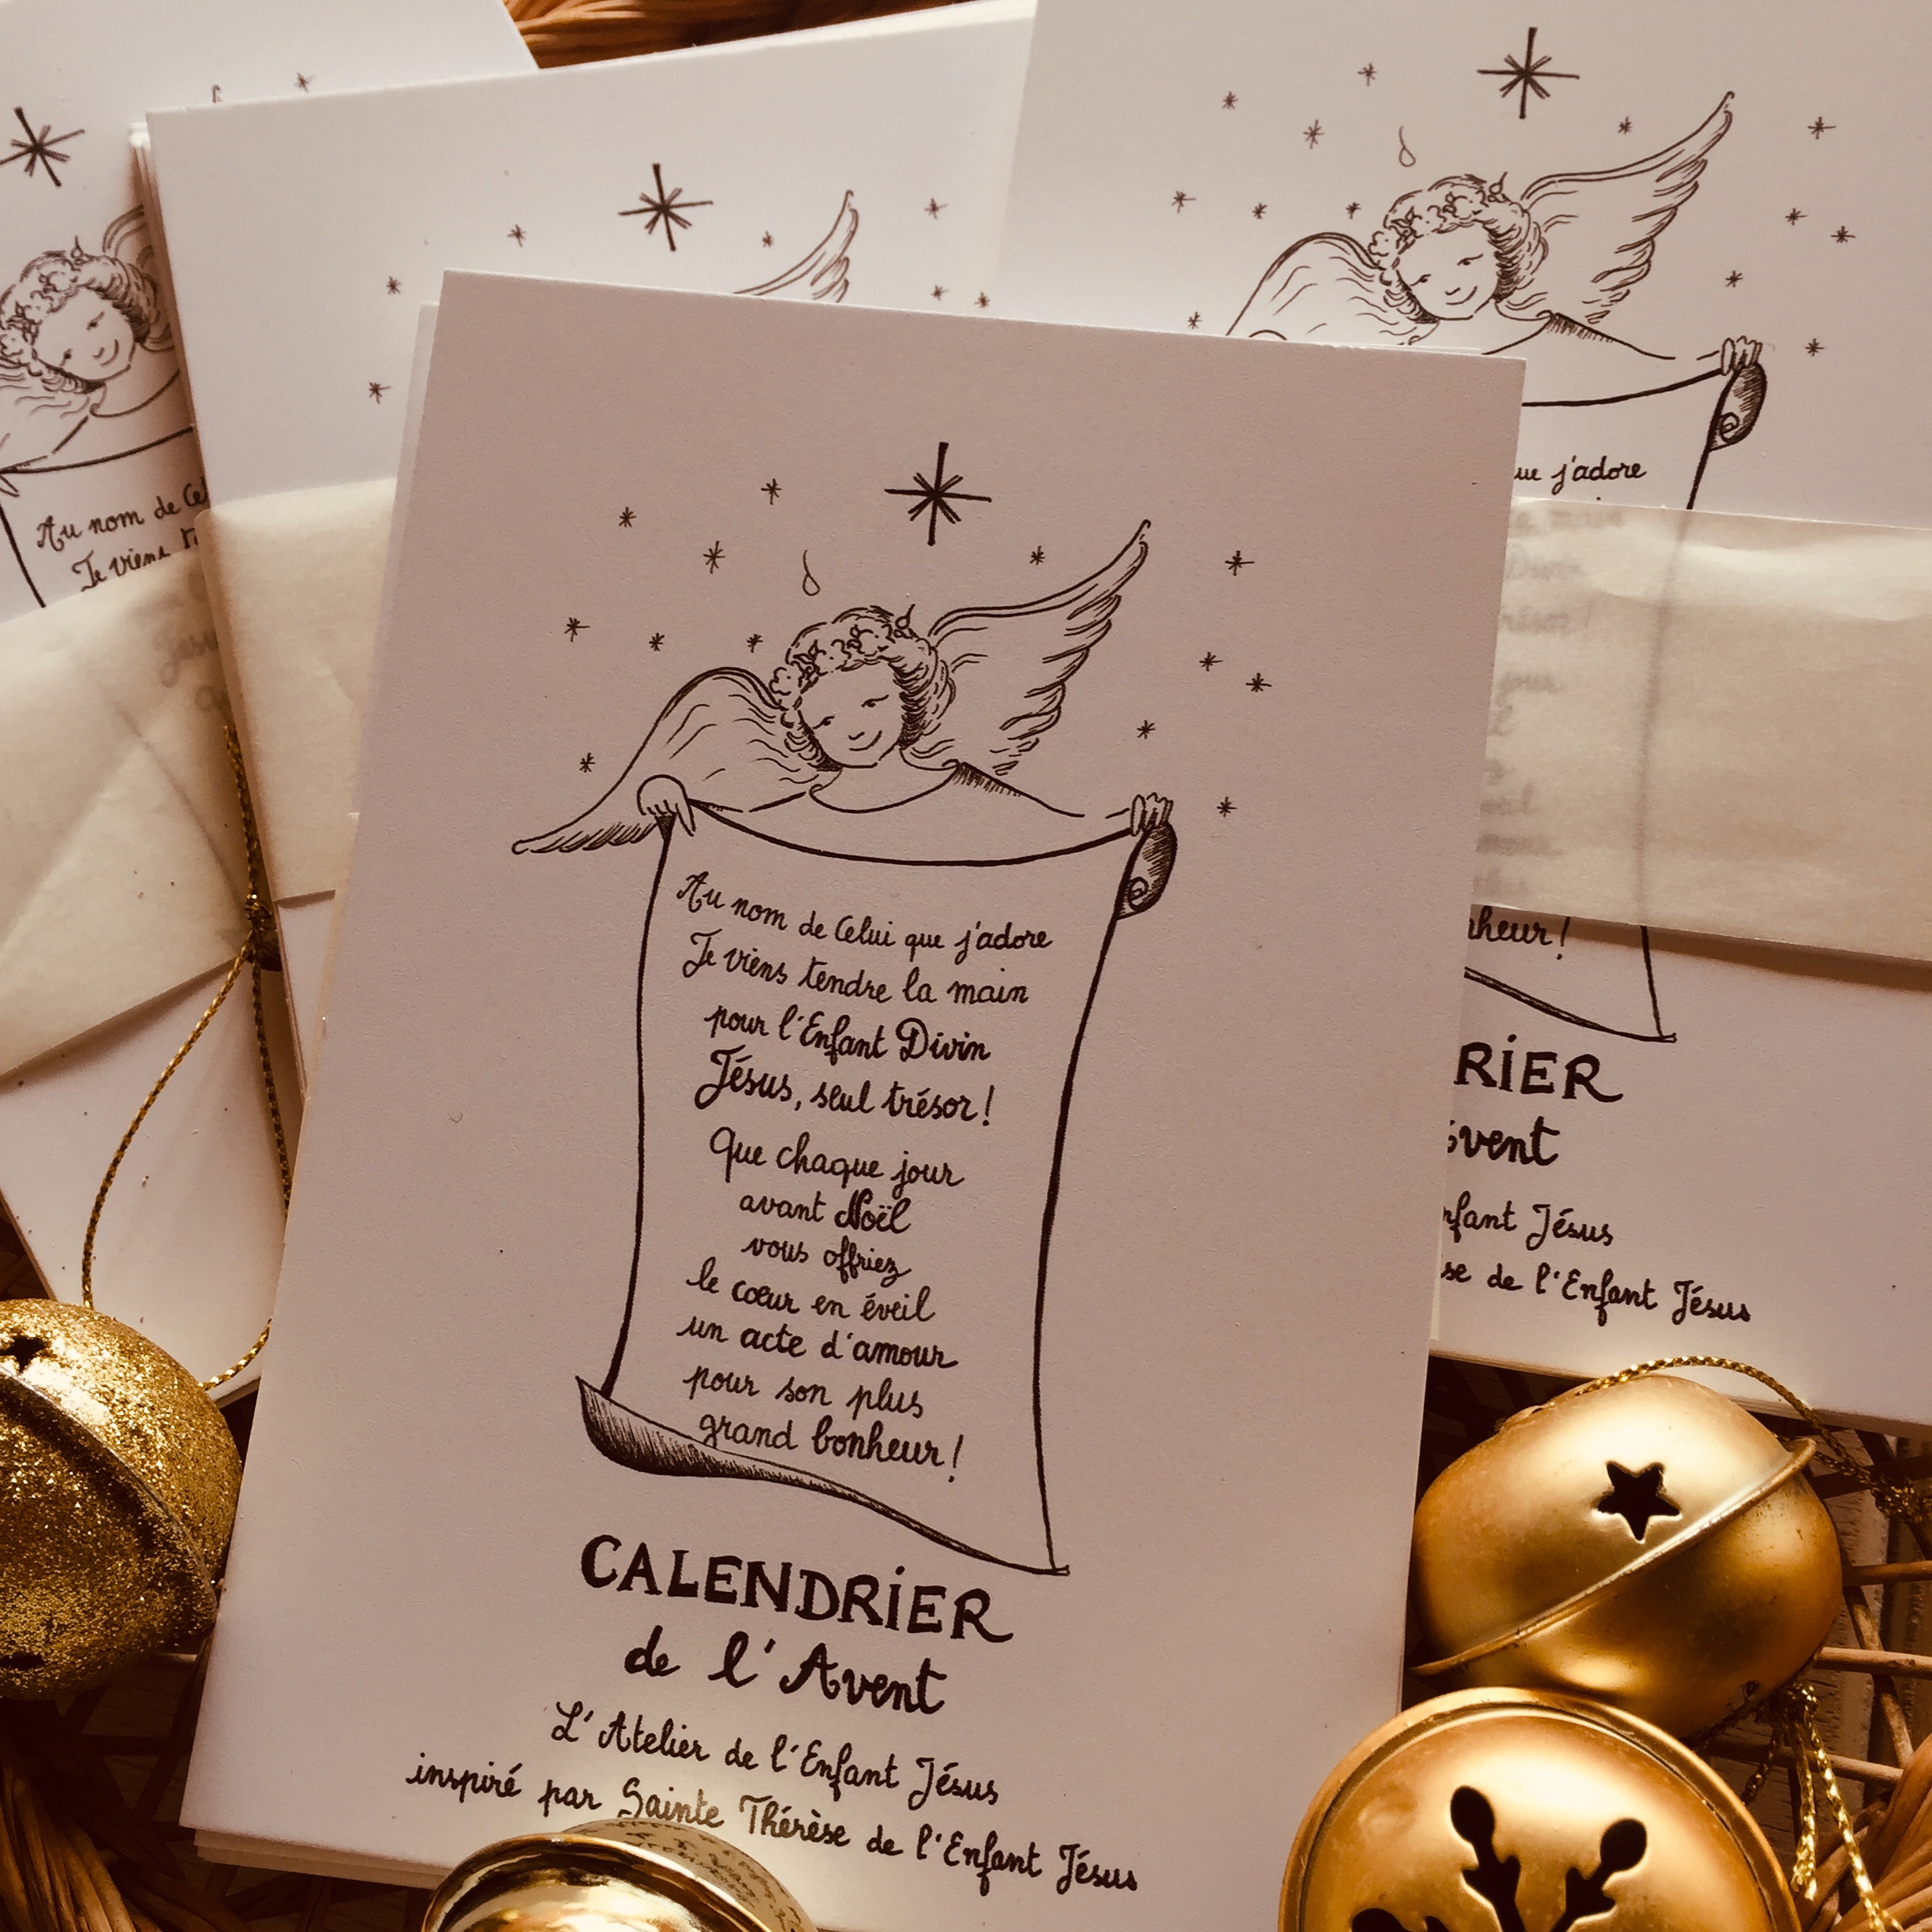 Au nom de Celui que j'adore
Je viens tendre la main
pour l'Enfant Divin
Jésus, seul trésor !
Que chaque jour
avant Noël
vous offriez
le cœur en éveil
un acte d'amour
pour son plus
grand bonheur !
CALENDRIER
de l'Avent
L'Atelier de l'Enfant Jésus
inspiré par Sainte Thérèse de l'Enfant Jésus
Au nom de Cel
Je viens t
ue j'adore
nheur !
RIER
vent
nfant Jésus
se de l'Enfant Jésus